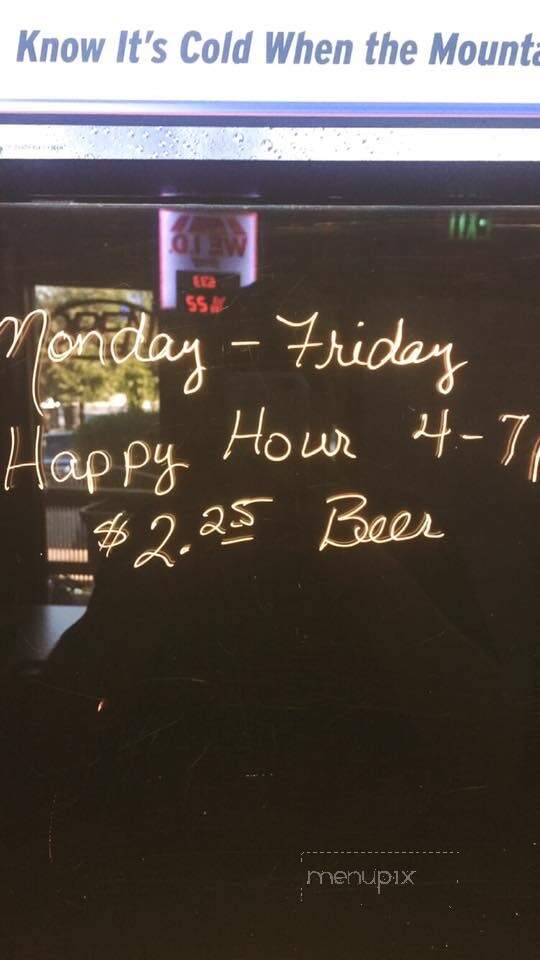 Know It's Cold When the Mounta
WE I.D.
Monday - Friday
Happy Hour 4-7p
$2.25 Beer
menupix